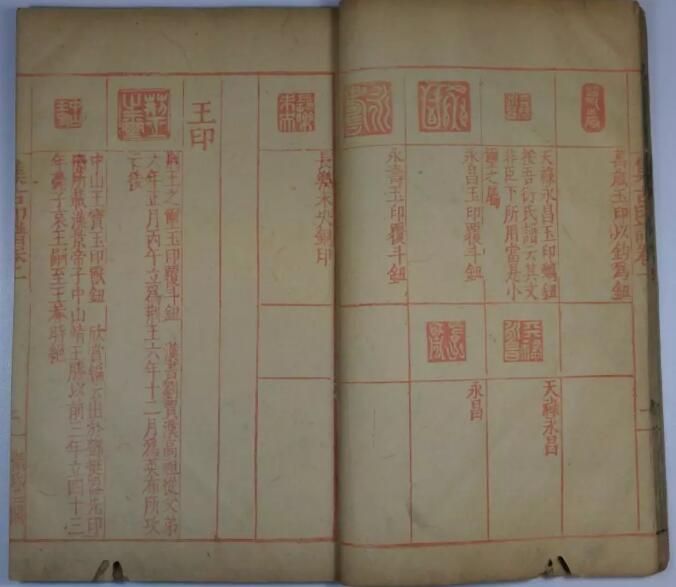 萬歲玉印以鈎爲鈕
天祿永昌玉印螭鈕
按吾衍氏譜云其文
非臣下所用當是小
璽之屬
永昌玉印覆斗鈕
永壽玉印覆斗鈕
天祿永昌
永昌
長樂未央銅印
王印
荆王之璽玉印覆斗鈕 漢書劉賈漢高祖從父弟
六年正月丙午立爲荆王六年十二月爲英布所攻
亡後
中山王寶玉印 鈕
所藏漢景帝子中山靖王勝以前三年立四十三
年薨子哀王嗣至王 時絕
集古印譜卷一